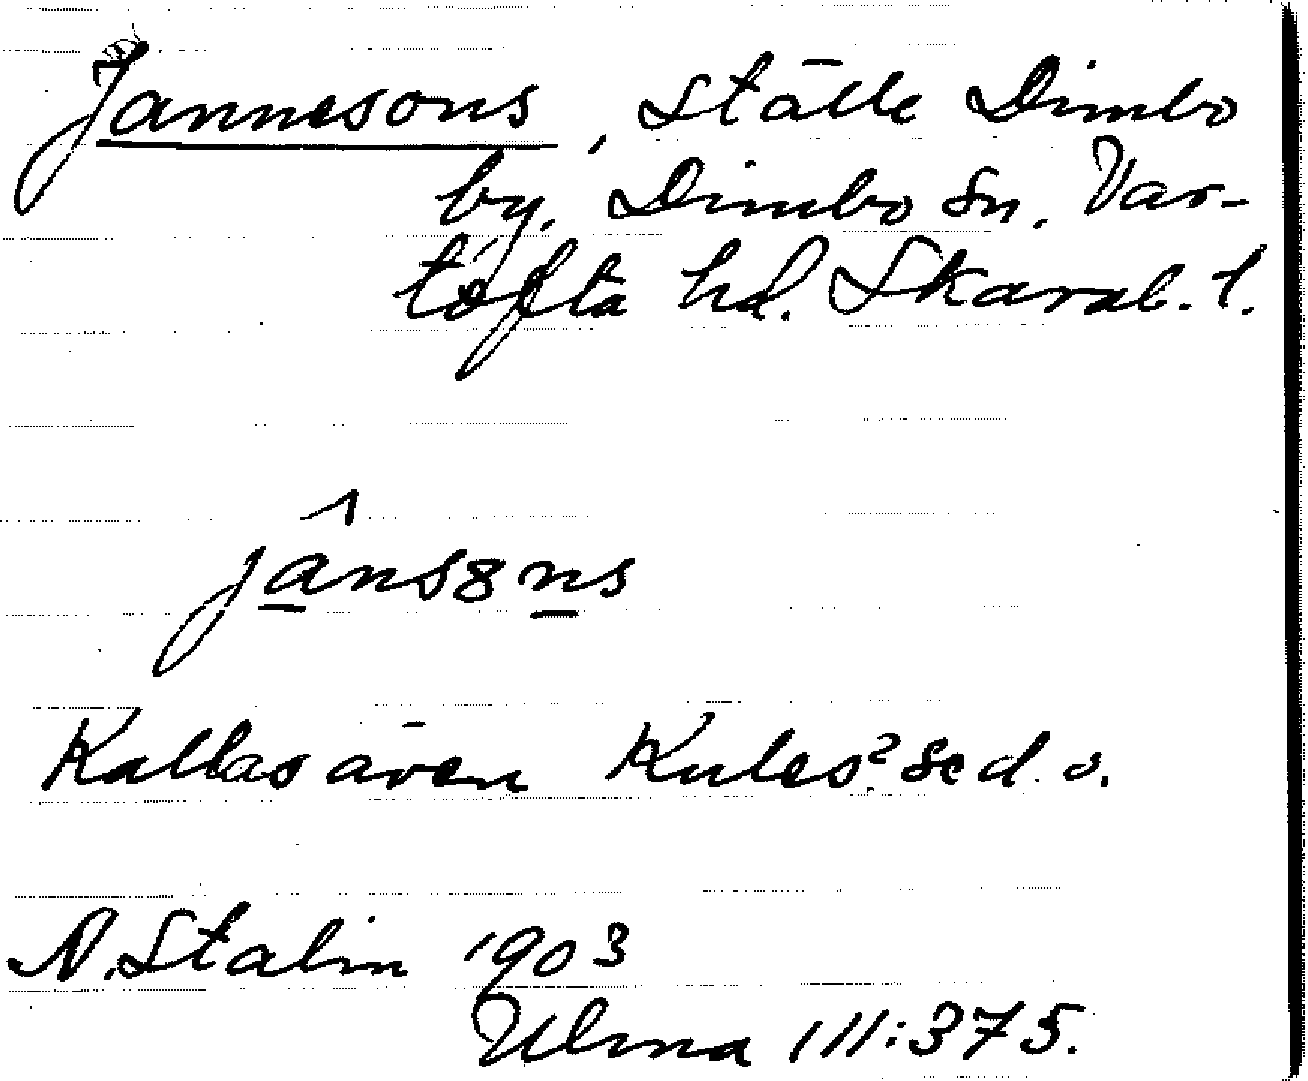 Jannesons, ställe Dimbo
by, Dimbo sn. Var-
tofta hd. Skarab. l.
jânsɞns
Kallas även Kules? se d. o.
N. Stalin 1903
Ulma 111:375.